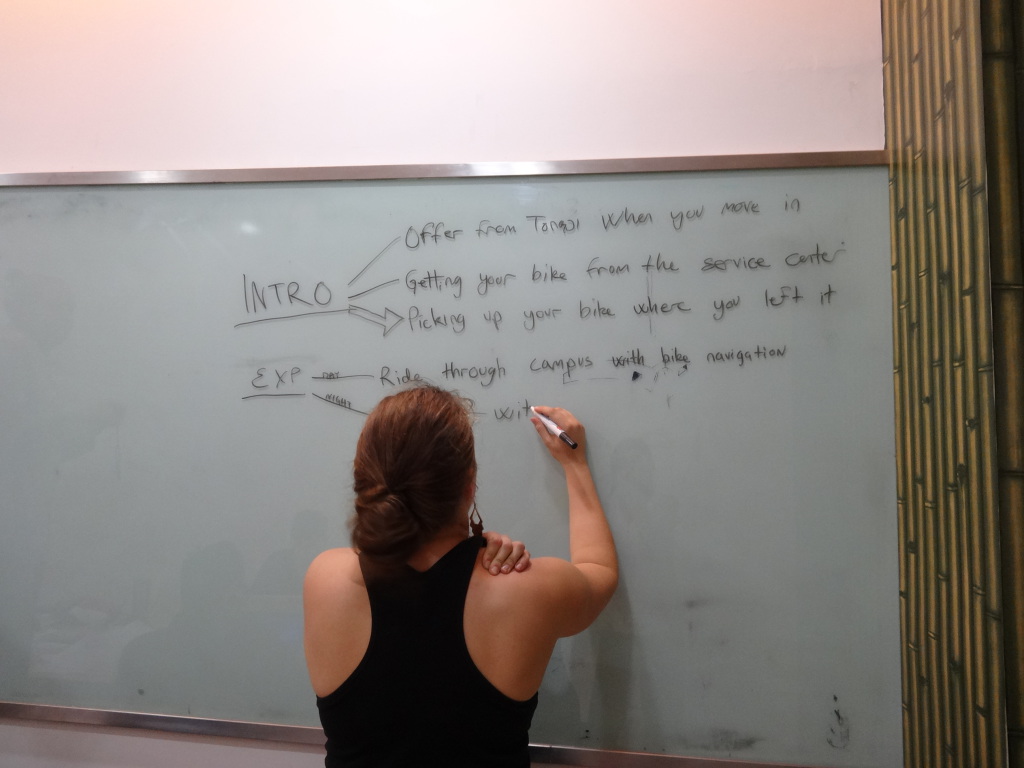 Offer from Tongji when you move in
INTRO
Getting your bike from the service center
Picking up your bike where you left it
EXP DAY Ride through campus with bike navigation
NIGHT wit